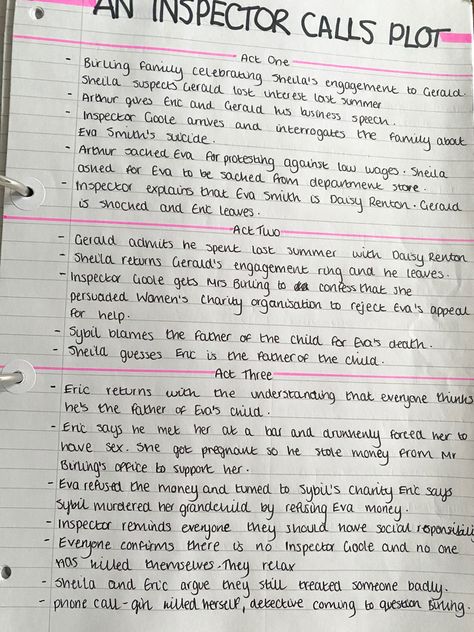 AN INSPECTOR CALLS PLOT
Act One
- Birling family celebrating Sheila's engagement to Gerald.
Sheila suspects Gerald lost interest last summer
- Arthur gives Eric and Gerald his business speech.
- Inspector Goole arrives and interrogates the family about
Eva Smith's suicide.
- Arthur sacked Eva for protesting against low wages. Sheila
asked for Eva to be sacked from department store.
- Inspector explains that Eva Smith is Daisy Renton. Gerald
is shocked and Eric leaves.
Act Two
- Gerald admits he spent last summer with Daisy Renton
- Sheila returns Gerald's engagement ring and he leaves.
- Inspector Goole gets Mrs Birling to confess that she
persuaded Women's charity organisation to reject Eva's appeal
for help.
- Sybil blames the father of the child for Eva's death.
- Sheila guesses Eric is the father of the child.
Act Three
- Eric returns with the understanding that everyone thinks
he's the father of Eva's child.
- Eric says he met her at a bar and drunkenly forced her to
have sex. She got pregnant so he stole money from Mr
Birling's office to support her.
- Eva refused the money and turned to Sybil's charity Eric says
Sybil murdered her grandchild by refusing Eva money.
- Inspector reminds everyone they should have social responsibility
- Everyone confirms there is no Inspector Goole and no one
has killed themselves. They relax
- Sheila and Eric argue they still treated someone badly.
- phone call - girl killed herself, detective coming to question Birling.